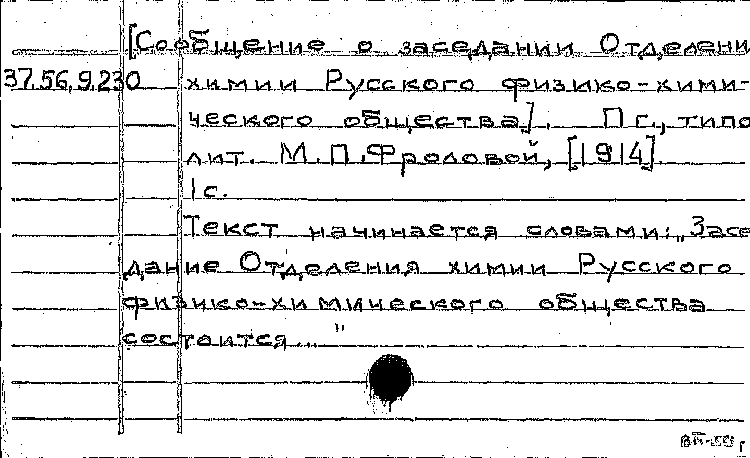 [Сообщение о заседании Отделени
37.56.9.230 химии Русского физико-хими-
ческого общества]. Пг., типо
лит. М.П.Фроловой, [1914].
1с.
Текст начинается словами: „Засе
дание Отделения химии Русского
физико-химического общества
состоится..."